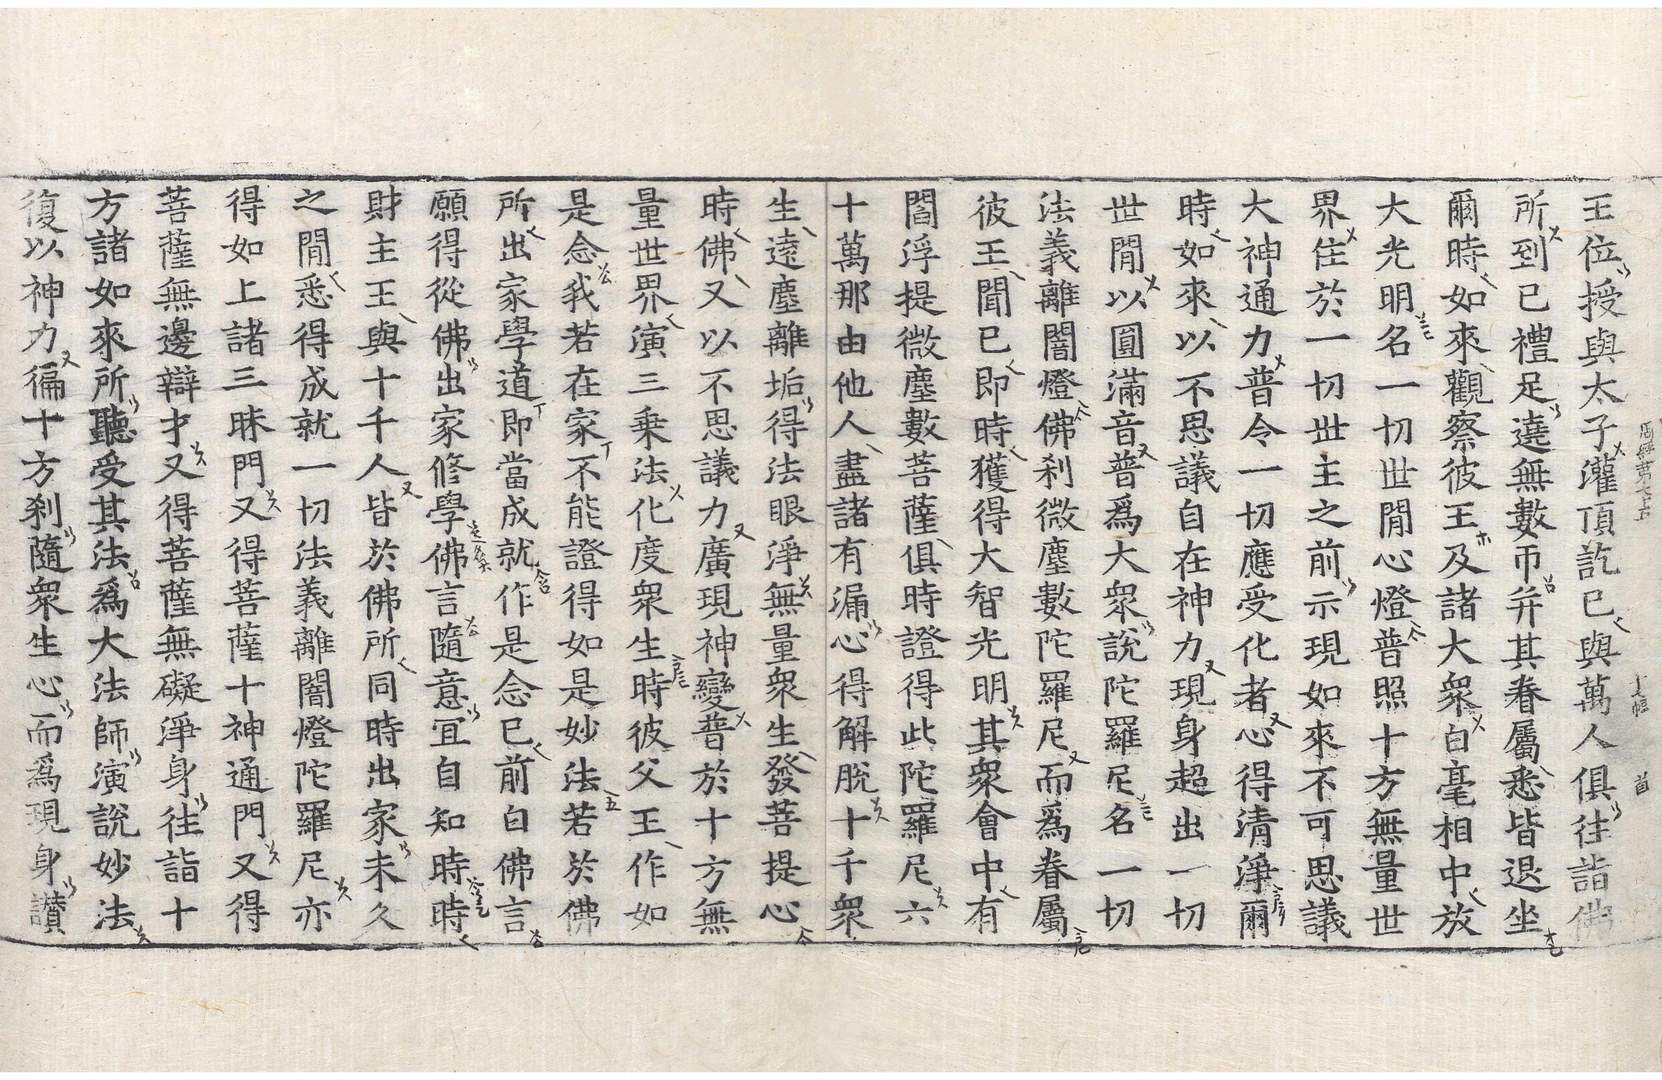 王位授與太子灌頂訖已與萬人俱往詣佛
所到已禮足遶無數帀并其眷屬悉皆退坐
爾時如來觀察彼王及諸大衆白毫相中放
大光明名一切世閒心燈普照十方無量世
界住於一切世主之前示現如來不可思議
大神通力普令一切應受化者心得清淨爾
時如來以不思議自在神力現身超出一切
世閒以圓滿音普爲大衆說陀羅尼名一切
法義離闇燈佛刹微塵數陀羅尼而爲眷屬
彼王聞已即時獲得大智光明其衆會中有
閻浮提微塵數菩薩俱時證得此陀羅尼六
十萬那由他人盡諸有漏心得解脫十千衆
生遠塵離垢得法眼淨無量衆生發菩提心
時佛又以不思議力廣現神變普於十方無
量世界演三乗法化度衆生時彼父王作如
是念我若在家不能證得如是妙法若於佛
所出家學道即當成就作是念已前白佛言
願得從佛出家修學佛言隨意宜自知時時
財主王與十千人皆於佛所同時出家未久
之閒悉得成就一切法義離闇燈陀羅尼亦
得如上諸三昧門又得菩薩十神通門又得
菩薩無邊辯才又得菩薩無礙淨身往詣十
方諸如來所聽受其法爲大法師演說妙法
復以神力徧十方刹隨衆生心而爲現身讃